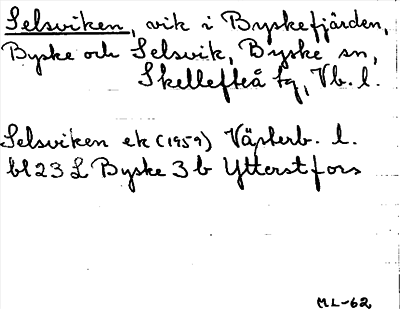 Selsviken, vik i Byskefjärden,
Byske och Selsvik, Byske sn,
Skellefteå tg, Vb. l.
Selsviken ek (1959) Västerb. l.
bl 23 L Byske 3 b Ytterstfors
ML-62